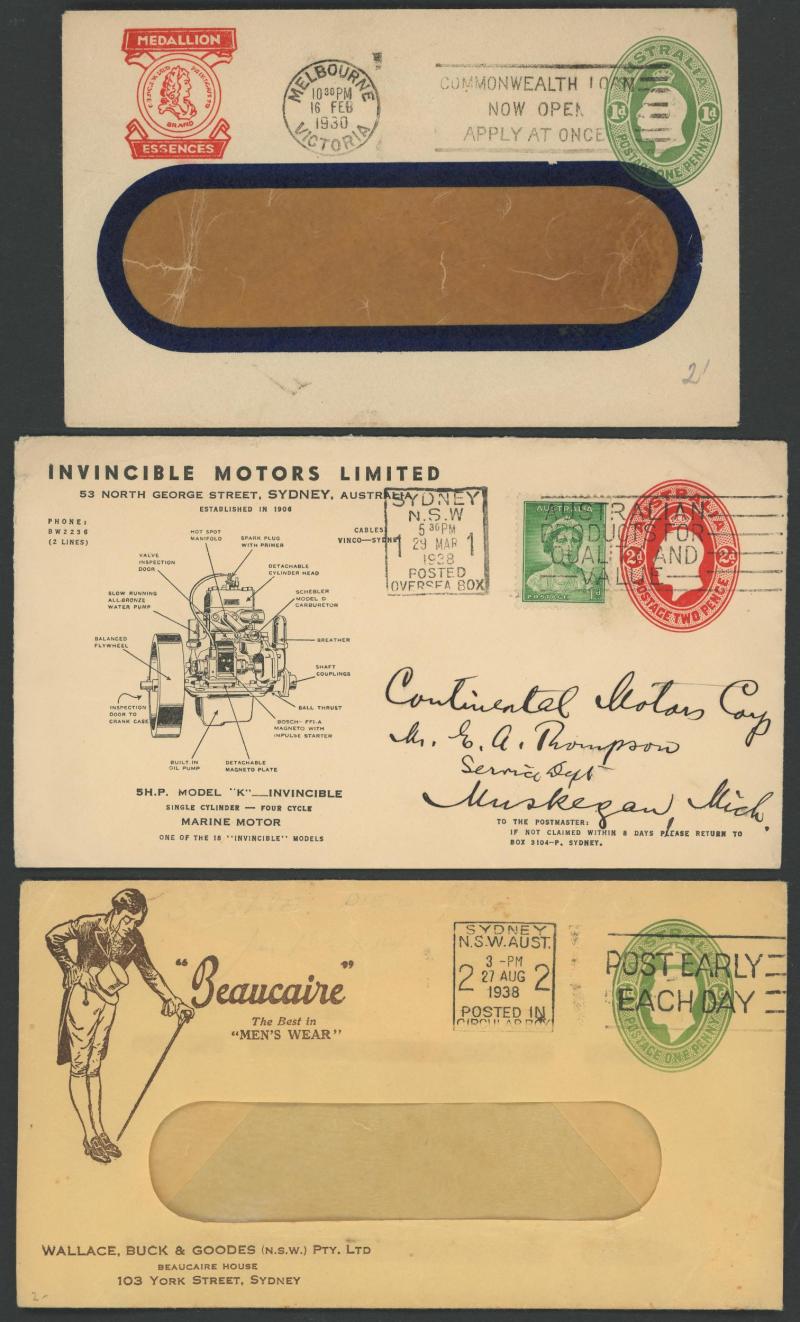 MEDALLION
BRAND
ESSENCES
MELBOURNE
10 30 PM
16 FEB
1930
VICTORIA
COMMONWEALTH LOAN
NOW OPEN
APPLY AT ONCE
AUSTRALIA
1d 1d
POSTAGE ONE PENNY
2/
INVINCIBLE MOTORS LIMITED
53 NORTH GEORGE STREET, SYDNEY, AUSTRALIA
ESTABLISHED IN 1906
PHONE:
BW2236
(2 LINES)
CABLES:
VINCO—SYDNEY
HOT SPOT
MANIFOLD
SPARK PLUG
WITH PRIMER
VALVE
INSPECTION
DOOR
DETACHABLE
CYLINDER HEAD
SLOW RUNNING
ALL-BRONZE
WATER PUMP
SCHEBLER
MODEL D
CARBURETOR
BALANCED
FLYWHEEL
BREATHER
SHAFT
COUPLINGS
INSPECTION
DOOR TO
CRANK CASE
BALL THRUST
BOSCH-FFI-A
MAGNETO WITH
IMPULSE STARTER
BUILT IN
OIL PUMP
DETACHABLE
MAGNETO PLATE
5H.P. MODEL "K"—INVINCIBLE
SINGLE CYLINDER — FOUR CYCLE
MARINE MOTOR
ONE OF THE 18 "INVINCIBLE" MODELS
SYDNEY
N.S.W
5 30PM
1 29 MAR 1
1938
POSTED
OVERSEA BOX
AUSTRALIA
POSTAGE
1d
AUSTRALIAN
PRODUCTS FOR
QUALITY AND
VALUE
AUSTRALIA
2d 2d
POSTAGE TWO PENCE
Continental Motors Corp
Mr. E. A. Thompson
Service Dept
Muskegan, Mich.
TO THE POSTMASTER:
IF NOT CLAIMED WITHIN 8 DAYS PLEASE RETURN TO
BOX 3104-P, SYDNEY.
"Beaucaire"
The Best in
"MEN'S WEAR"
SYDNEY
N.S.W. AUST.
3 -PM
2 27 AUG 2
1938
POSTED IN
CIRCULAR BOX
POST EARLY
EACH DAY
AUSTRALIA
POSTAGE ONE PENNY
WALLACE, BUCK & GOODES (N.S.W.) PTY. LTD
BEAUCAIRE HOUSE
103 YORK STREET, SYDNEY
2-